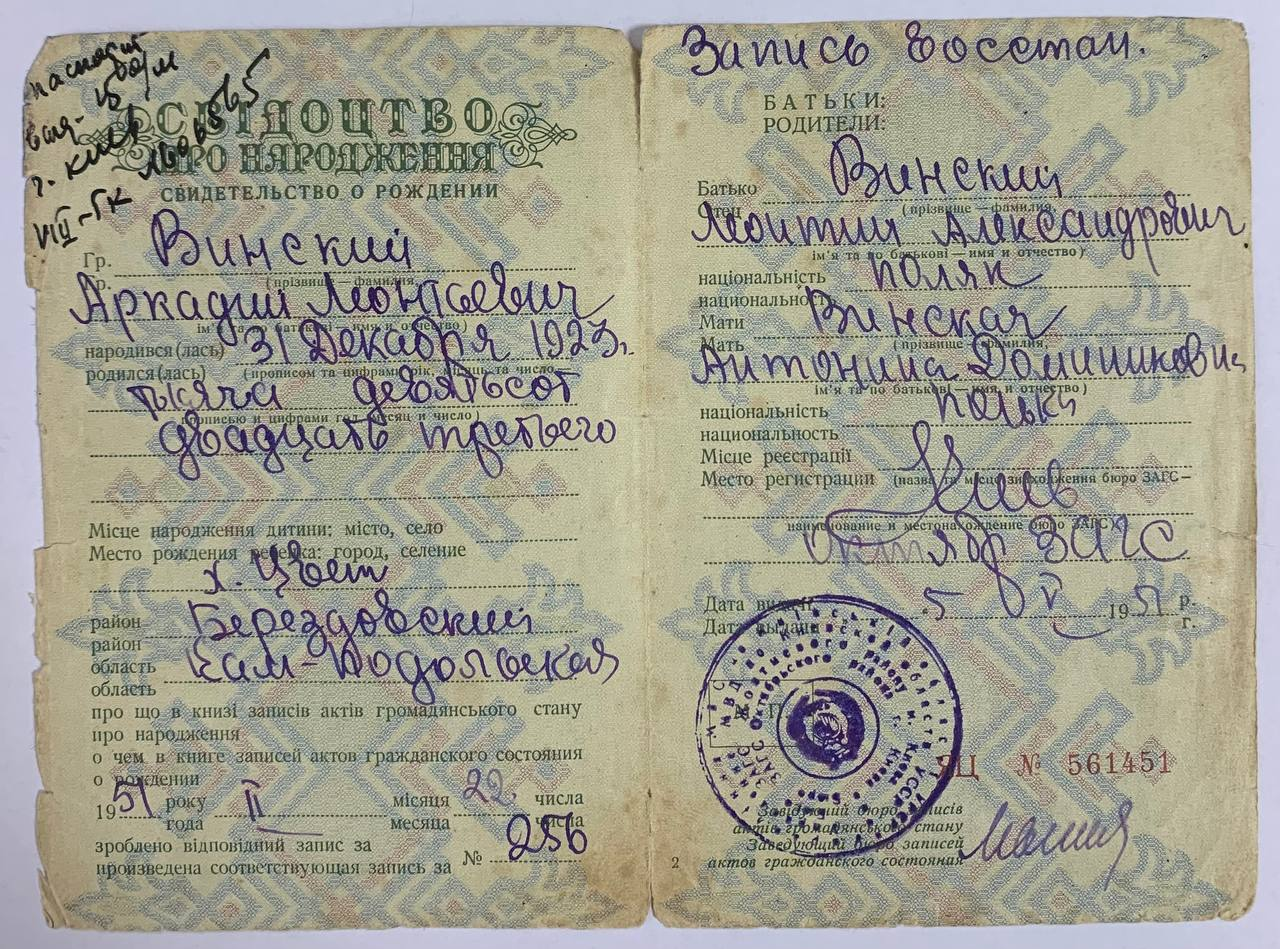 паспорт
выд-
г. Киев
VIII-ГК
СВІДОЦТВО
ПРО НАРОДЖЕННЯ
СВИДЕТЕЛЬСТВО О РОЖДЕНИИ
Гр. Винский
Гр. (прізвище — фамилия)
Аркадий Монтьевич
ім'я та по батькові — имя и отчество)
народився(лась) 31 Декабря 1923г.
родился(лась) (прописом та цифрами рік, місяць та число
тысяча девятьсот
прописью и цифрами год, месяц и число)
двадцать третьего
Місце народження дитини: місто, село
Место рождения ребенка: город, селение
х. Цвет
район Берездовский
район
область Кам-Подольская
область
про що в книзі записів актів громадянського стану
про народження
о чем в книге записей актов гражданского состояния
о рождении
1951 року II місяця 22 числа
года месяца числа
зроблено відповідний запис за
произведена соответствующая запись за № 256
Запись восстан.
БАТЬКИ:
РОДИТЕЛИ:
Батько Винский
Отец (прізвище — фамилия,
Монтий Александрович
ім'я та по батькові — имя и отчество)
національність поляк
национальность
Мати Винская
Мать (прізвище — фамилия,
Антонина Доминиковн
ім'я та по батькові — имя и отчество)
національність полька
национальность
Місце реєстрації
Место регистрации (назва та місце знаходження бюро ЗАГС —
Киев
наименование и местонахождение бюро ЗАГС)
Октябр ЗАГС
Дата видачі 5 IV 1951 р.
Дата выдачи г.
ЯЦ № 561451
Завідуючий бюро записів
актів громадянського стану
Заведующий бюро записей
2 актов гражданского состояния